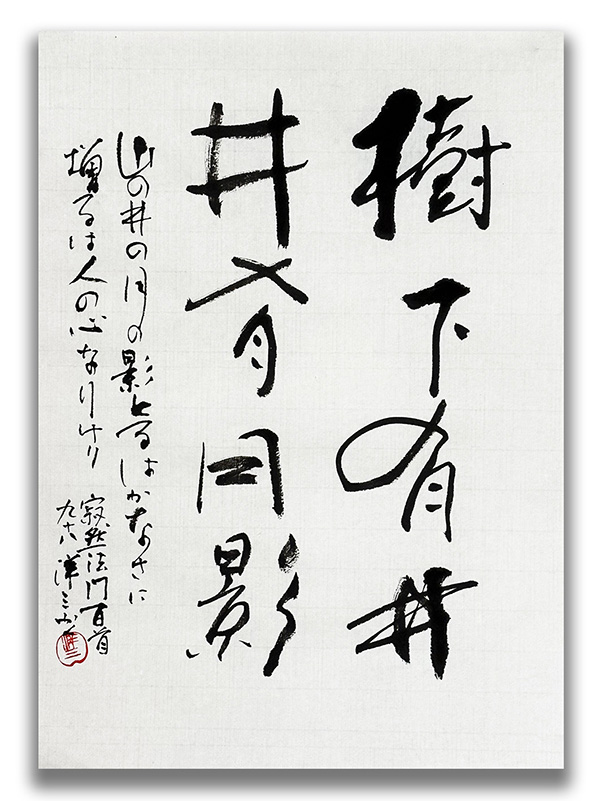 樹下有井
井有月影
山の井の月の影とるはかなさに
増るは人の心なりけり
寂然法門百首
九十八 洋三書